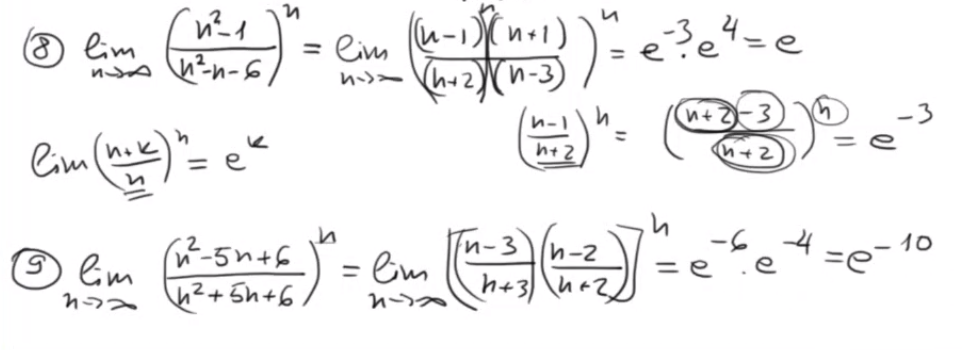 ⑧ lim n→∞ ((n²-1)/(n²-n-6))ⁿ = lim n→∞ (((n-1)/(n+2))ⁿ((n+1)/(n-3)))ⁿ = e⁻³·e⁴ = e
((n-1)/(n+2))ⁿ = ((n+2-3)/(n+2))ⁿ = e⁻³
lim ((n+k)/n)ⁿ = eᵏ
⑨ lim n→∞ ((n²-5n+6)/(n²+5n+6))ⁿ = lim n→∞ [((n-3)/(n+3))((n-2)/(n+2))]ⁿ = e⁻⁶·e⁻⁴ = e⁻¹⁰